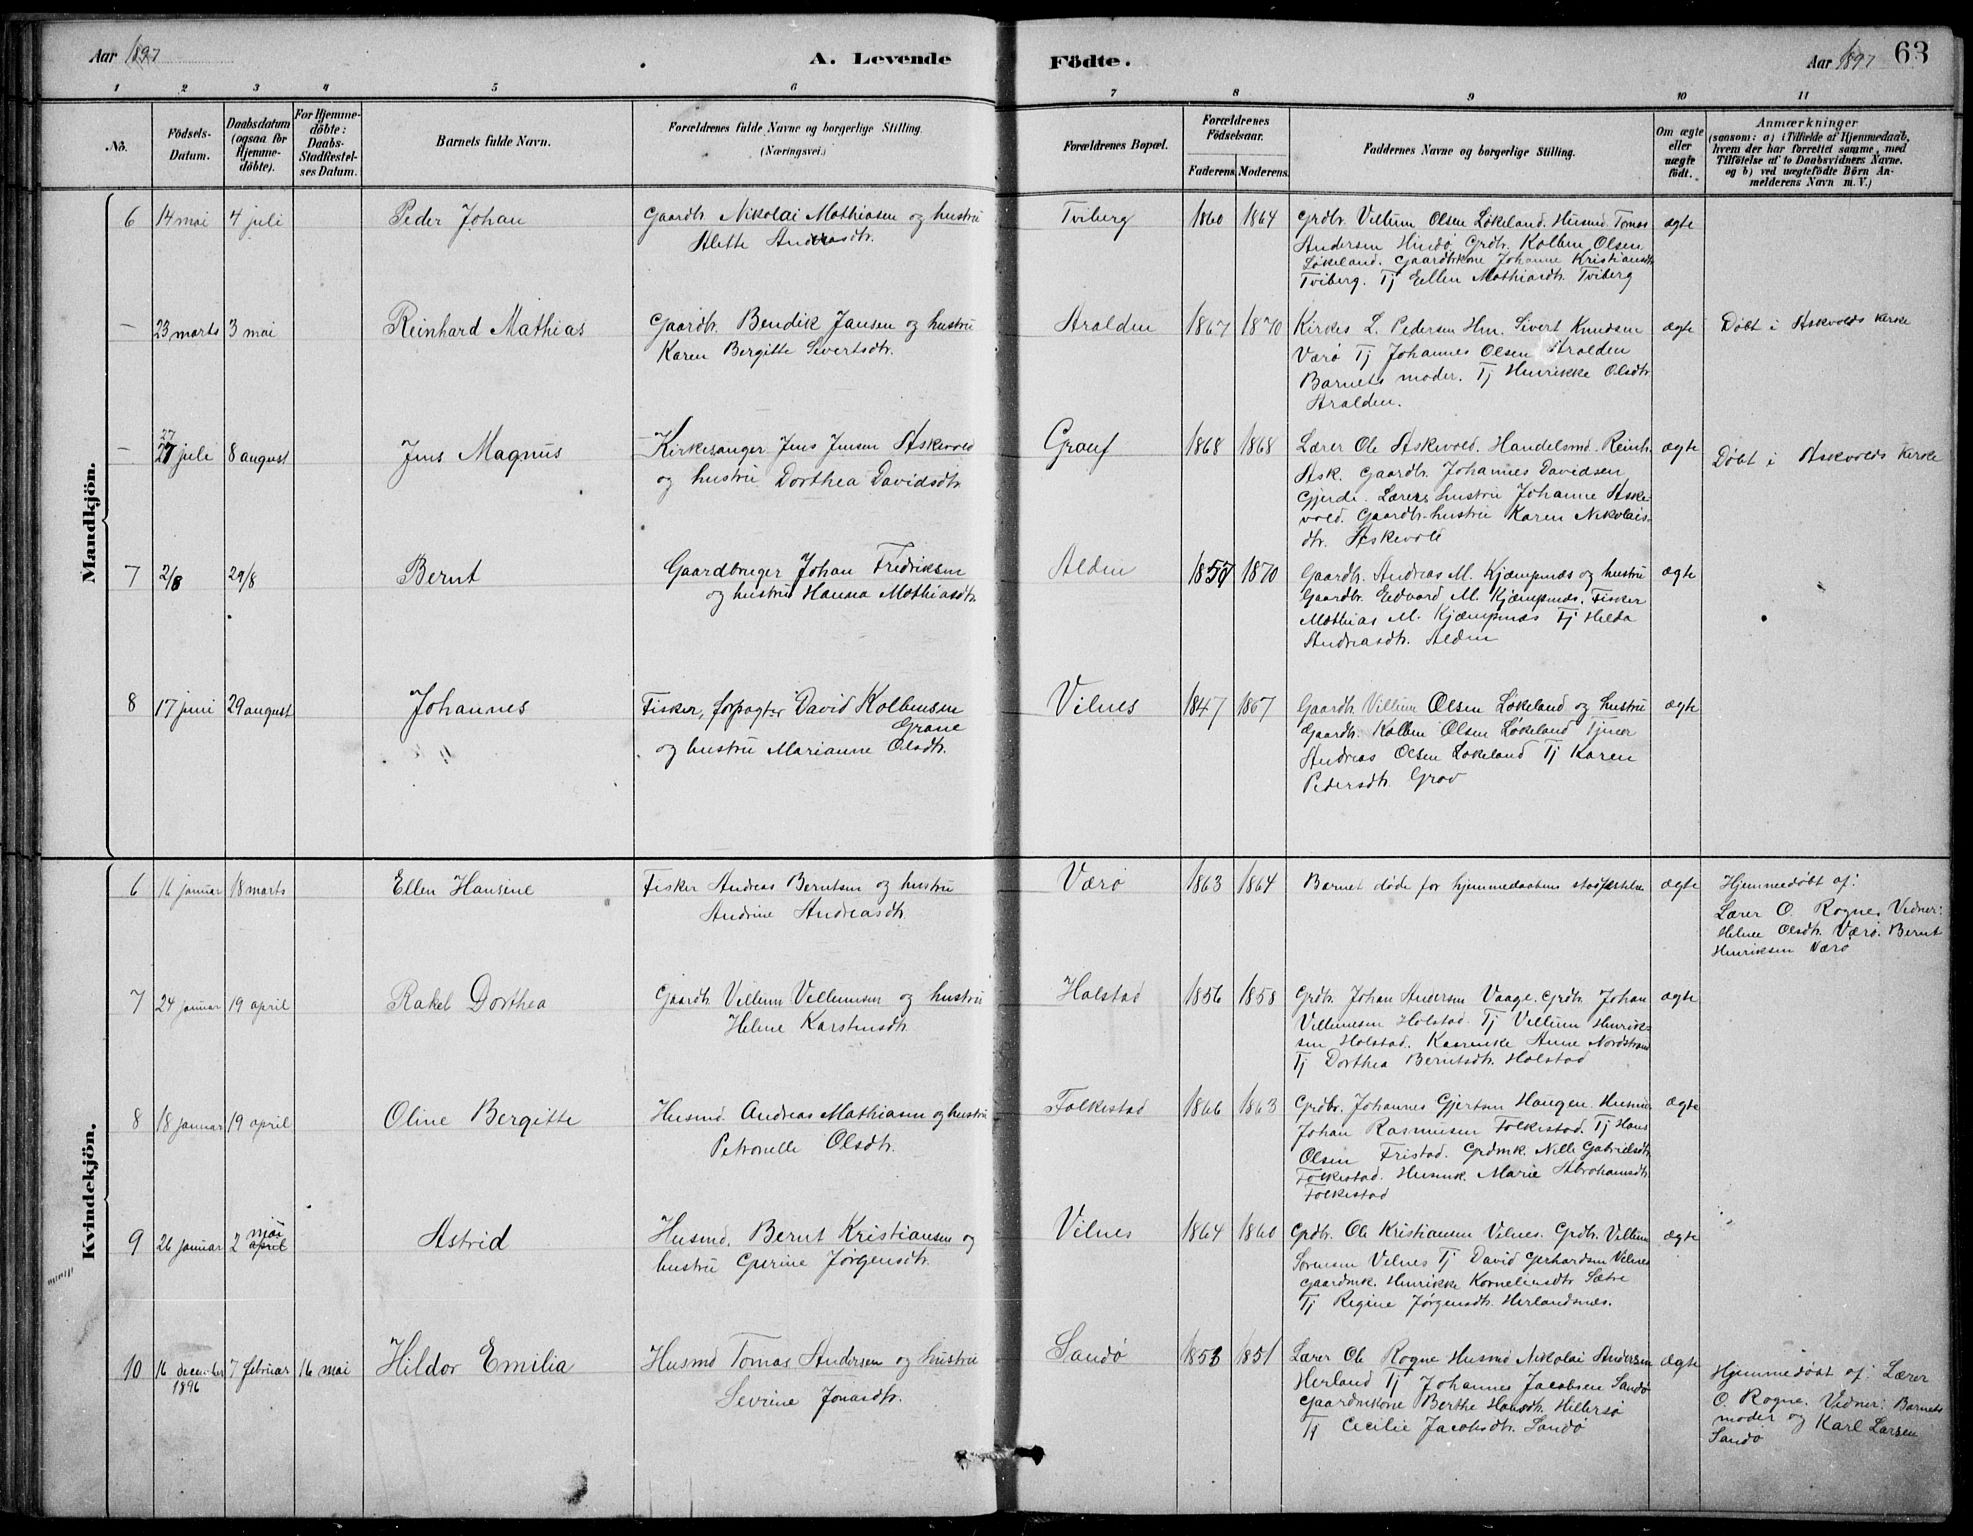 Aar 1897 A. Levende Födte. Aar 1897 63
1 2 3 4 5 6 7 8 9 10 11
No.
Födsels-
Datum.
Daabsdatum
(ogsaa for
Hjemme-
döbte).
For Hjemme-
döbte:
Daabs-
Stadfæstel-
ses Datum.
Barnets fulde Navn.
Forældrenes fulde Navne og borgerlige Stilling.
(Næringsvei.)
Forældrenes Bopæl.
Forældrenes
Födselsaar.
Faderens. Moderens.
Faddernes Navne og borgerlige Stilling.
Om ægte
eller
uægte
födt.
Anmærkninger
(saasom: a) i Tilfælde af Hjemmedaab,
hvem der har forrettet samme, med
Tilföielse af to Daabsvidners Navne.
og b) ved uægtefödte Börn An-
melderens Navn m. V.)
Mandkjön.
6 14 mai 4 juli Peder Johan
Gaardbr. Nikolai Mathiasen og hustru
Alette Andreasdtr.
Tviberg 1860 1864
Grdbr. Villum Olsen Løkeland. Husmd. Tomas
Andersen Hindø. Grdbr. Kolben Olsen
Løkeland. Gaardbrkone Johanne Kristiansdtr.
Tviberg. Tj Ellen Mathiasdtr. Tviberg
ægte
– 23 marts 3 mai Reinhard Mathias
Gaardbr. Bendik Jansen og hustru
Karen Bergitte Sivertsdtr.
Aralden 1867 1870
Kirkes. L. Pedersen Hm. Sivert Knudsen
Værø Tj Johannes Olsen Aralden
Barnets moder. Tj Henrikke Olsdtr.
Aralden.
ægte
Døbt i Askvolds kirke
– 27
27 juli 8 august Jens Magnus
Kirkesanger Jens Jensen Askevold
og hustru Dorthea Davidsdtr.
1868 1868
Lærer Ole Askevold. Handelsmd. Reinh.
Ask. Gaardbr. Johannes Davidsen
Gjerde. Lærers hustru Johanne Aske-
vold. Gaardbr.hustru Karen Nikolais-
dtr. Askevold
ægte
Døbt i Askvolds Kirke
7 2/8 29/8 Bernt
Gaardbruger Johan Fredriksen
og hustru Hanna Mathiasdtr.
Alden 1857 1870
Gaardbr. Andreas M. Kjæmpnæs og hustru
Gaardbr. Edvard M. Kjæmpnæs. Fisker
Mathias M. Kjæmpnæs Tj Hilda
Andreasdtr. Alden
ægte
8 17 juni 29 august Johannes
Fisker, forpagter David Kolbensen
Grane
og hustru Marianne Olsdtr.
Vilnes 1847 1867
Gaardbr. Villum Olsen Løkeland og hustru
Gaardbr. Kolben Olsen Løkeland Tjener
Andreas Olsen Løkeland Tj Karen
Pedersdtr. Grov
ægte
Kvindekjön.
6 16 januar 18 marts Ellen Hansine
Fisker Andreas Berntsen og hustru
Andrine Andreasdtr.
Værø 1863 1864
Barnet døde før hjemmedaabens stadfæstelse
ægte
Hjemmedøbt af:
Lærer O. Rogne. Vidner:
Helene Olsdtr. Værø. Bernt
Henriksen Værø
7 24 januar 19 april Rakel Dorthea
Gaardbr. Villum Villumsen og hustru
Helene Karstensdtr.
Holstad 1856 1858
Grdbr. Johan Andersen Vaage. Grdbr. Johan
Villumsen Holstad. Tj Villum Henrik-
sen Holstad. Anne Nordstrand
Tj Dorthea Berntsdtr. Holstad
ægte
8 18 januar 19 april Oline Bergitte
Husmd. Andreas Mathiasen og hustru
Petronelle Olsdtr.
Folkestad 1866 1863
Grdbr. Johannes Gjertsen Haugen. Husmd
Johan Rasmussen Folkestad. Tj Hans
Olsen Fristad. Grdmk. Nelli Gabrielsdtr.
Folkestad. Husmk. Marie Abrahamsdtr.
Folkestad
ægte
mai
9 26 januar 2 april Astrid
Husmd. Bernt Kristiansen og
hustru Gurine Jørgensdtr.
Vilnes 1864 1860
Grdbr. Ole Kristiansen Vilnes. Grdbr. Villum
Sørensen Vilnes Tj David Gerhardsen Vilnes
Gaardmk. Henrikke Korneliusdtr Sætre
Tj Regine Jørgensdtr. Herlandsnæs.
ægte
10 16 december
1896
7 februar 16 mai Hildor Emilia
Husmd Tomas Andersen og hustru
Sevrine Jonasdtr.
Sandø 1853 1851
Lærer Ole Rogne Husmd Nikolai Andersen
Herland Tj Johannes Jacobsen Sandø
Gaardmkone Berthe Hansdtr. Hillersø
Tj Cecilie Jacobsdtr. Sandø
ægte
Hjemmedøbt af: Lærer
O. Rogne. Vidner: Barnets
moder og Karl Larsen
Sandø